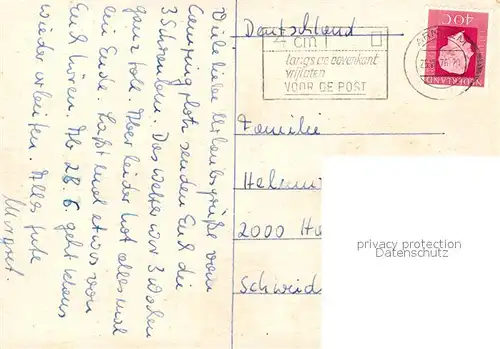 Viele liebe Urlaubsgrüße vom
Campingplatz senden Euch die
3 Das Wetter war 3 Wochen
ganz toll. Aber leider hat alles mal
ein Ende. Laßt mal etwas von
Euch hören. Ab 28.6. geht Klaus
wieder arbeiten. Alles Gute
Margret.
Deutschland
4 cm
langs de bovenkant
vrijlaten
VOOR DE POST
40C
NEDERLAND
Familie
Helmu
2000 Ha
Schweid
privacy protection
Datenschutz